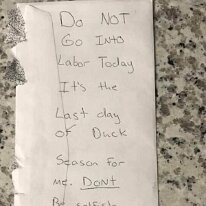 Do NOT
Go Into
Labor Today
It's the
Last day
of Duck
Season for
me. DONT
Be selfish